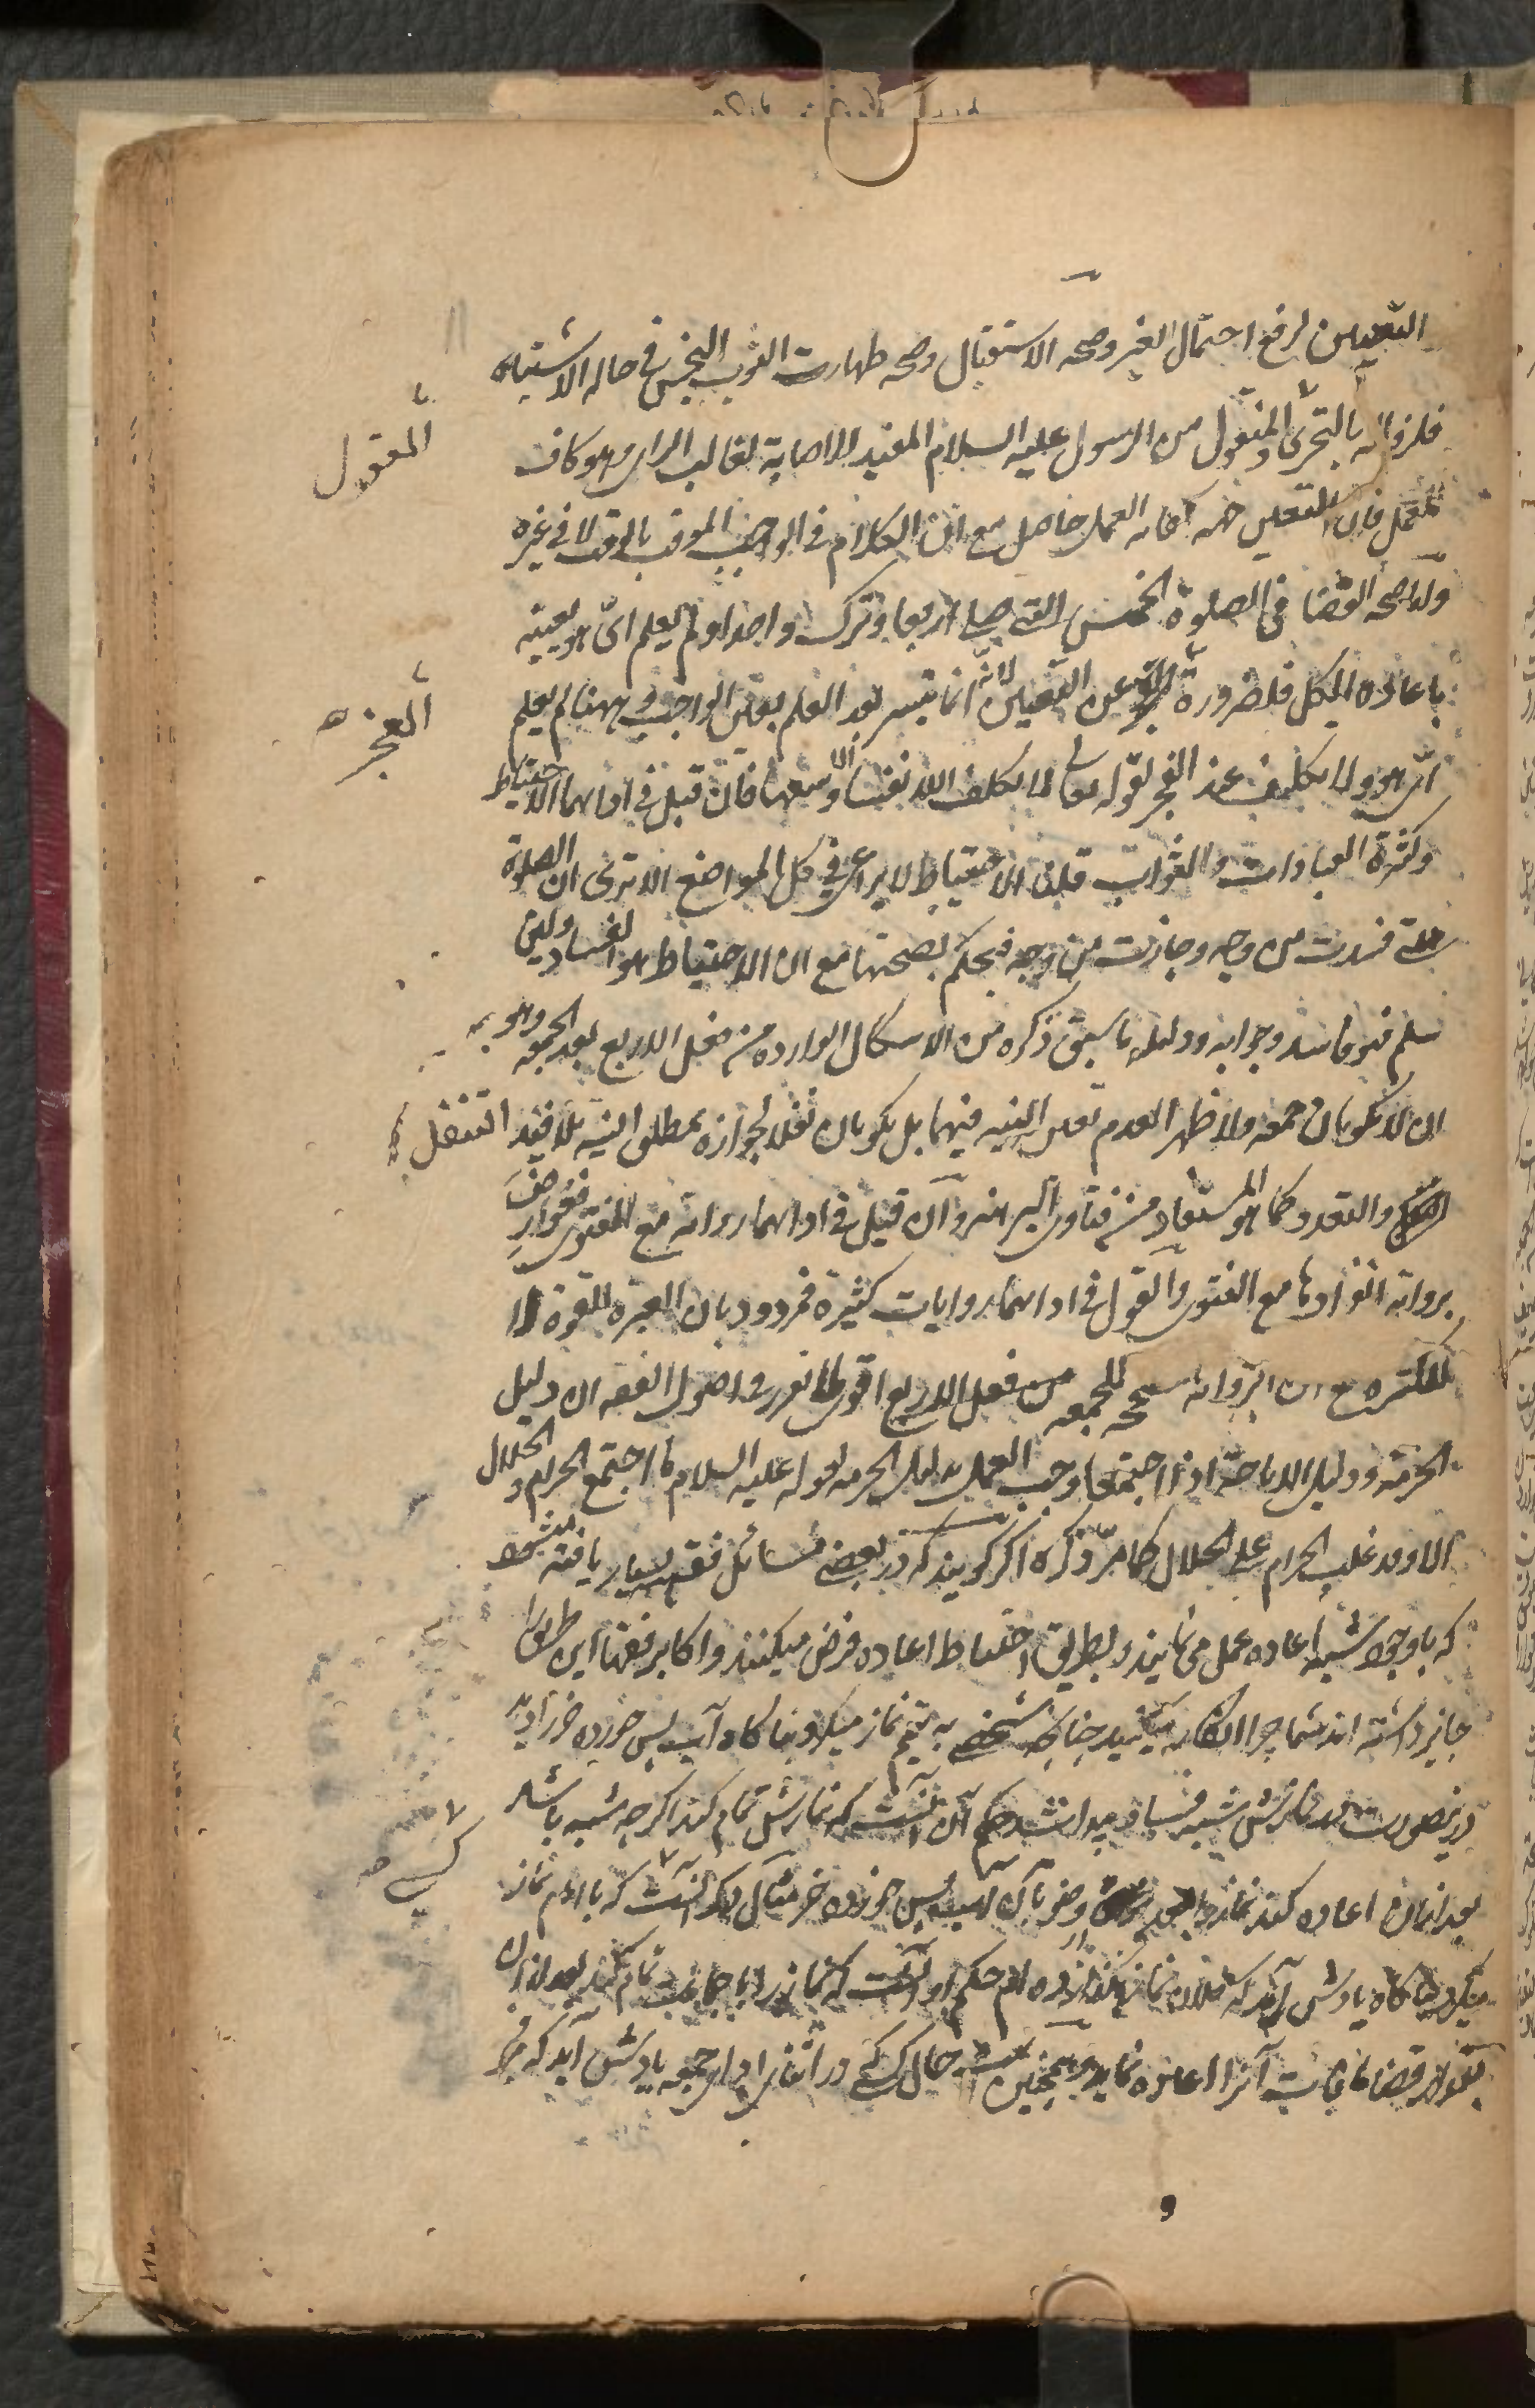 التعیین لرفع احتمال الغیر وصحة الاستقبال وصحة طهارت الثوب النجس فی حالة الاشتباه
فلزواله بالتحری المنقول من الرسول علیه السلام المفید للاصابة لغالب الرای وهو کاف
المعقول
للعمل فان التعیین العمل حاصل مع ان الکلام فی الواجب الموقت بالوقت لا فی غیره
ولما صحة القضا فی الصلوة الخمس التی صلی اربعا وترک واحدا ولم یعلم ای هو بعینه
باعادة الکل فلضرورة العجز عن التعیین لانه انما تیسر بعد العلم بتعین الواجب وههنا لم یعلم
العجز صح
ای هو ولا تکلیف عند العجز لقوله تعالی لا یکلف الله نفسا الا وسعها فان قیل فی ادائهما الاحتیاط
وکثرة العبادات والثواب قلنا الاحتیاط لا یراعی فی کل المواضع الا تری ان الصلوة
التی فسدت من وجه وجازت من وجه فیحکم بصحتها مع ان الاحتیاط هو الفساد ولئن
سلم فهو فاسد وجوابه ودلیله ما سبق ذکره من الاشکال الوارد من فعل الاربع بعد الجمعة وهو
ان لا یکونان جمعة ولا ظهر العدم تعین النیة فیهما بل یکونان نفلا لجوازه بمطلق النیة بلا قید التنفل
والتعدد کما هو المستفاد من فتاوی البرهنه وان قیل فی ادائهما روایة مع الفتوی فمعارض
بروایة انفرادها مع الفتوی والقول فی ادائهما روایات کثیرة فمردود بان العبرة للقوة لا
للکثرة مع ان الروایة للجمعة من فعل الاربع اقوی لما تقرر فی اصول الفقه ان دلیل
الحرمة ودلیل الاباحة اذا اجتمعا وجب العمل بدلیل الحرمة لقوله علیه السلام ما اجتمع الحرام والحلال
الا وقد غلب الحرام علی الحلال کما مر ذکره اگر گویند که در بعضے مسائل فقه بسیار یافته میشود
که با وجود شبه اعاده عمل می نمایند و بطریق احتیاط اعاده فرض میکنند و اکابر فقها این طور را
جایز داشته اند شما چرا انکار میکنید چنانچه شخصے به تیمم نماز میکرد و ناگاه آب پس خورده خر را دید
درینصورت در نمازش شبه فساد پیدا شد حکم آن آنست که نمازش تمام کند اگرچه شبه باشد
بعد ازان اعاده کند نماز را بعد وضو بآن آب پس خورده خر مثال دیگر آنست که با امام نماز
کسے صح
میکرد ناگاه یادش آمد که فلان نماز نگذارده ام حکم او آنست که نماز را با جماعت تمام کند بعد ازان
بقول قضا مافات آنرا اعاده نماید و همچنین است حال کسے که در اثنای ادای جمعه یادش آید که فجر
و